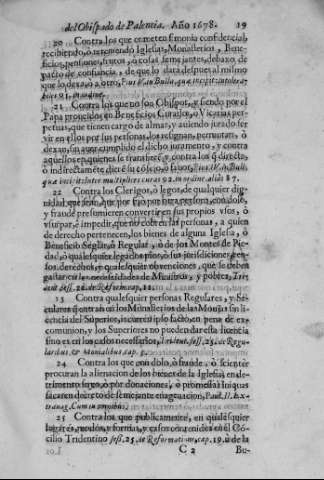 del Obispado de Palencia. Año 1678. 19
20 Contra los que cometen simonia confidencial,
recibiendo, ò teniendo Iglesias, Monasterios, Bene-
ficios, pensiones, frutos, ò cosas semejantes, debaxo de
pacto de confiança, de que lo darà despues al mismo
que lo dexa, ò a otro,
21 Contra los que no son Obispos, y siendo por el
Papa proueidos en Beneficios Curados, ò Vicarias per-
petuas, que tienen cargo de almas, y auiendo jurado ser-
uir en ellos por sus personas, los resignan, permutan, ò
dexan, sin auer cumplido el dicho juramento, y contra
aquellos en quienes se transfiere, y contra los q̃ directè,
ò indirectamẽte, dierẽ su cõsejo, ò fauor,
22 Contra los Clerigos, ò legos, de qualquier dig-
nidad que sean, que por sì, ò por otra persona, con dolo,
y fraude presumieren conuertir en sus proprios vsos, ò
vsurpar, ò impedir, que no cobren las personas, a quien
de derecho pertenecen, los bienes de alguna Iglesia, ò
Beneficio Seglar, ò Regular, ò de los Montes de Pie-
dad, ò qualesquier legados pios, ò sus jurisdiciones, ren-
tos, derechos, y qualesquier obvenciones, que se deben
gastar en las necessidades de Ministros, y pobres, Tri-
dent. sess. 22. de Reform. cap. 11.
23 Contra qualesquier personas Regulares, y Se-
culares q̃ entran en los Monasterios de las Monjas sin li-
cencia del Superior, incurrẽ ipso facto, en pena de ex-
comunion, y los Superiores no pueden dar esta licẽcia
sino es en los casos necessarios, Trident. sess. 25. de Regu-
laribus, & Monialibus cap. 5.
24 Contra los que con dolo, ò fraude, ò scienter
procuran la alienacion de los bienes de la Iglesia, en de-
trimento suyo, ò por donaciones, ò promessas iniquas
sacaren de semejante enagenacion, Paul. II. Ex-
trauag. Cum in omnibus.
25 Contra los que publicamente, en qualesquier
lugares, modos, y formas, y casos contenidos en el Cõ-
cilio Tridentino sess. 25. de Reformation. cap. 19. ù de la
C 2 Bu-